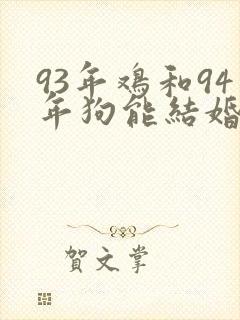 93年鸡和94
年狗能結婚
賀文掌